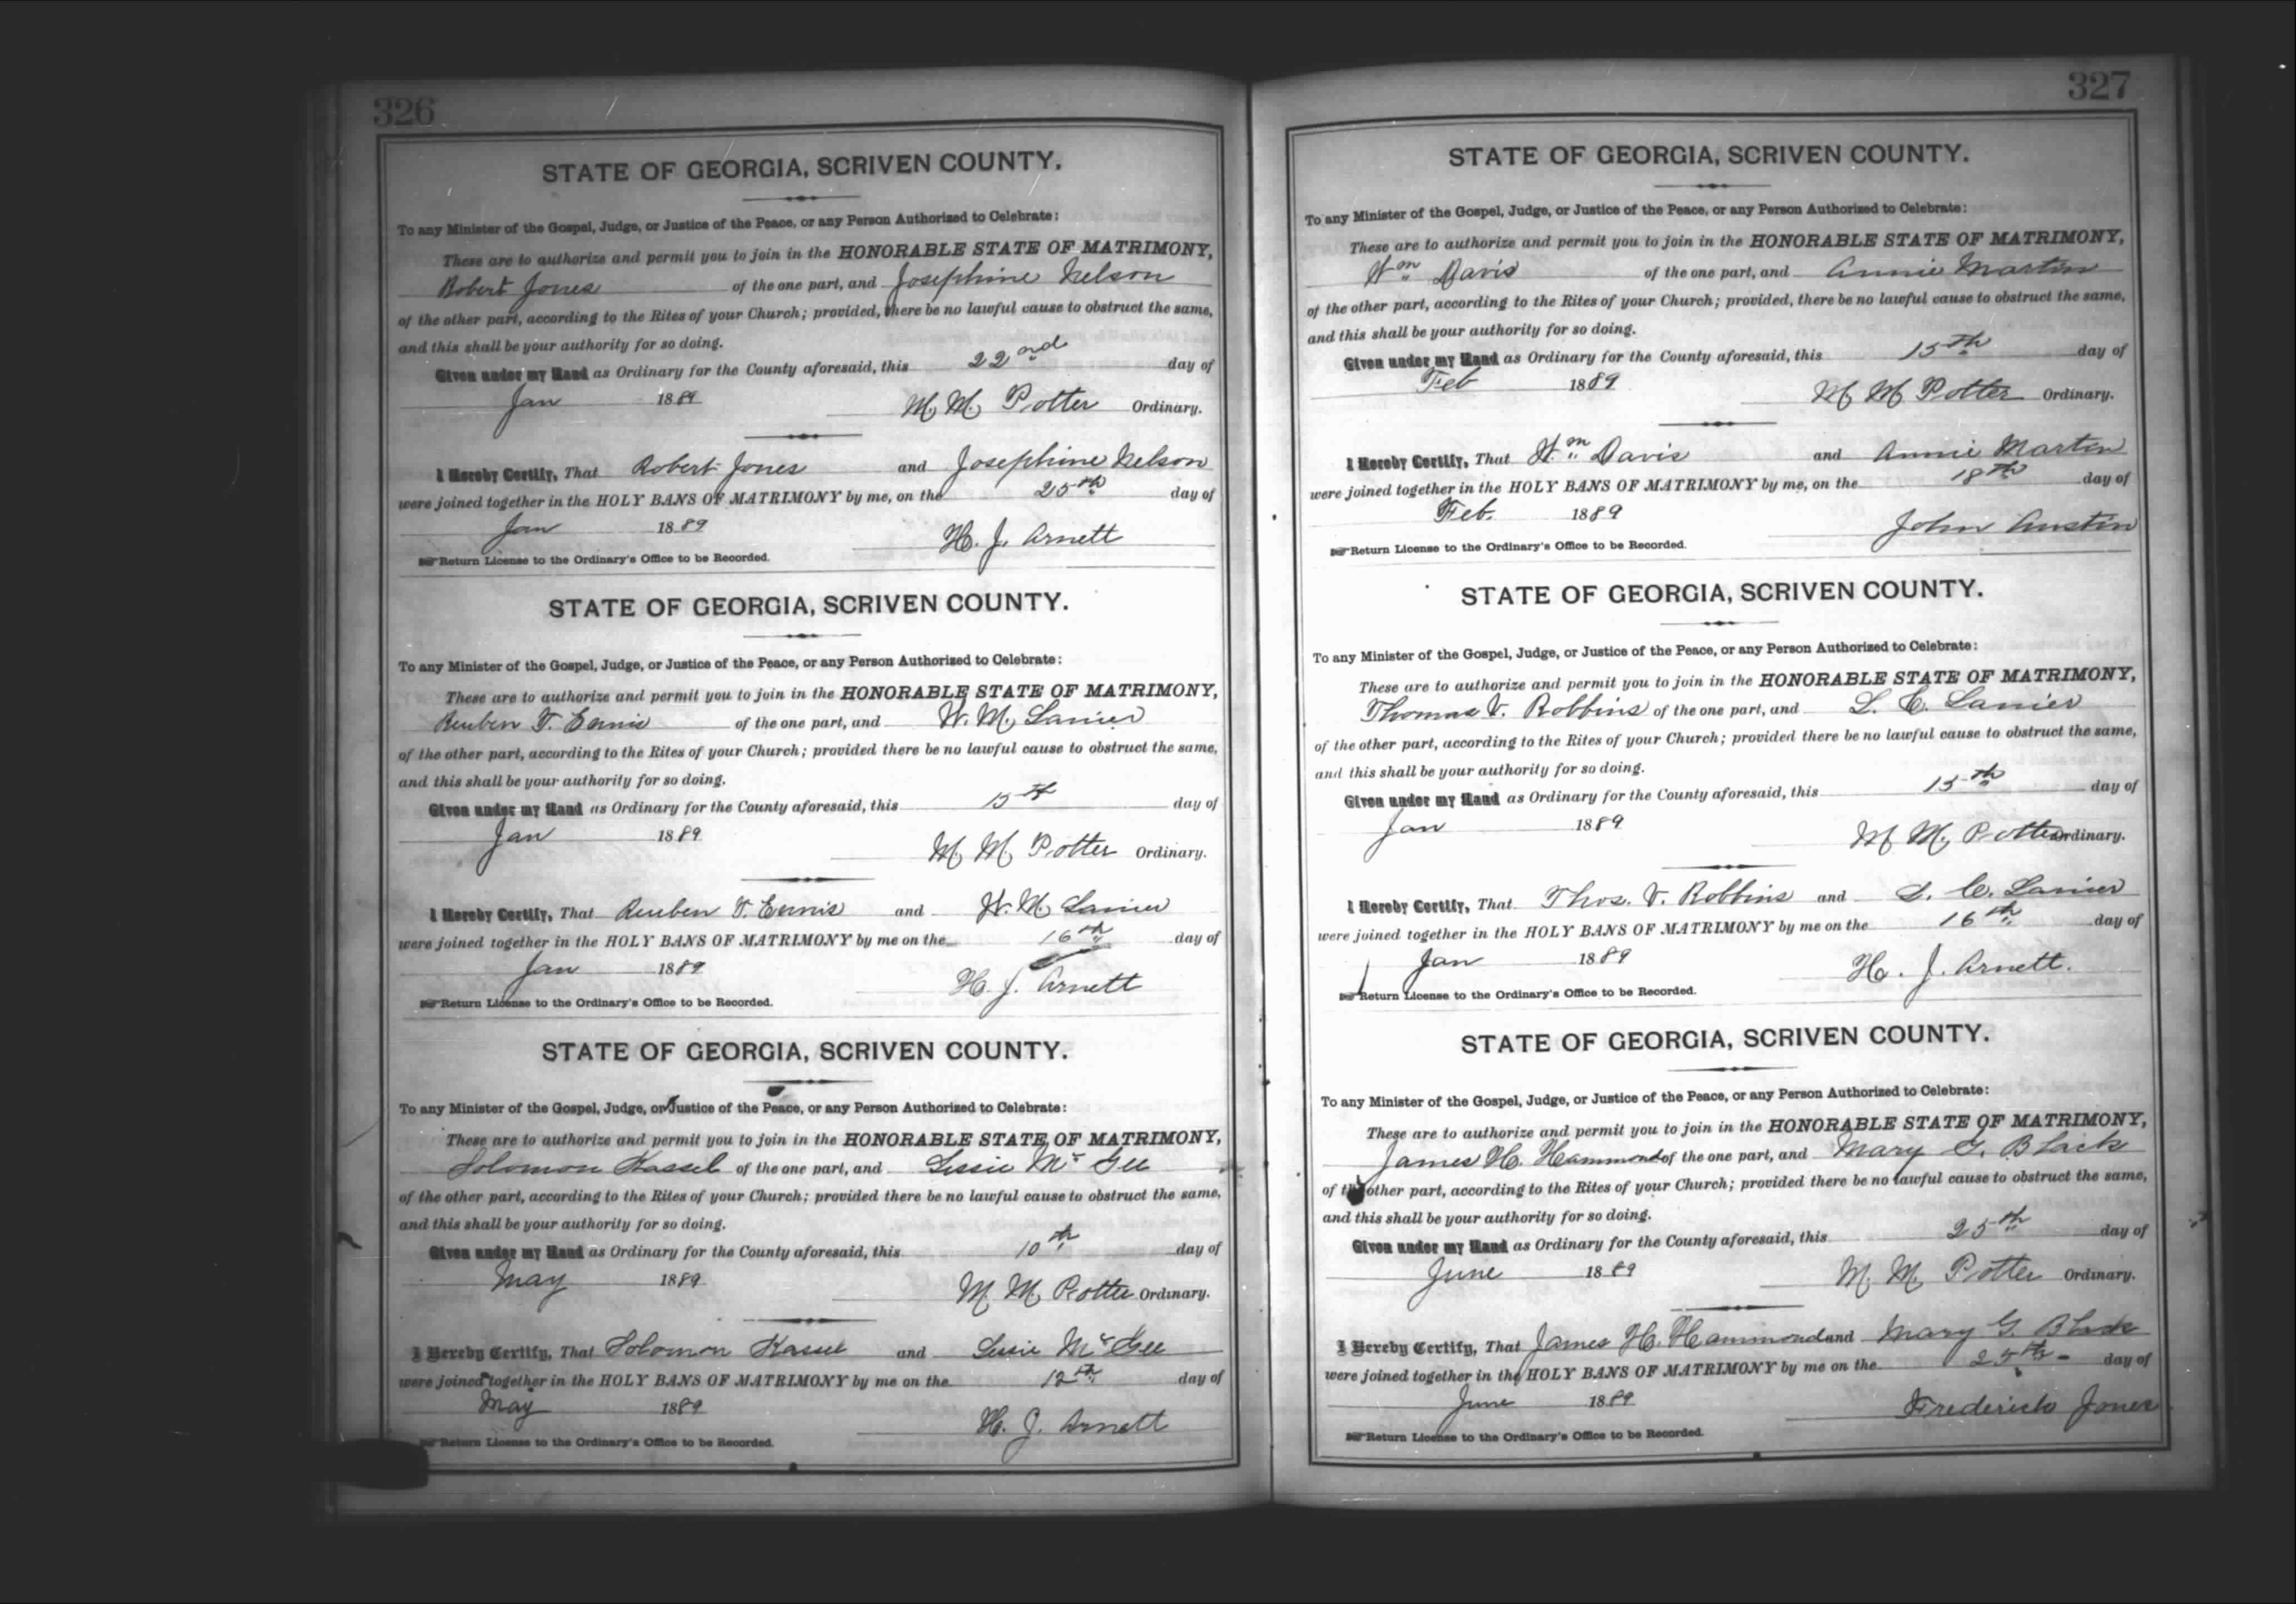 326
STATE OF GEORGIA, SCRIVEN COUNTY.
To any Minister of the Gospel, Judge, or Justice of the Peace, or any Person Authorized to Celebrate:
These are to authorize and permit you to join in the HONORABLE STATE OF MATRIMONY,
Robert Jones of the one part, and Josephine Nelson
of the other part, according to the Rites of your Church; provided, there be no lawful cause to obstruct the same,
and this shall be your authority for so doing.
Given under my Hand as Ordinary for the County aforesaid, this 22nd day of
Jan 1889 M. M. Potter Ordinary.
I Hereby Certify, That Robert Jones and Josephine Nelson
were joined together in the HOLY BANS OF MATRIMONY by me, on the 25th day of
Jan 1889
H. J. Arnett
Return License to the Ordinary's Office to be Recorded.
STATE OF GEORGIA, SCRIVEN COUNTY.
To any Minister of the Gospel, Judge, or Justice of the Peace, or any Person Authorized to Celebrate:
These are to authorize and permit you to join in the HONORABLE STATE OF MATRIMONY,
Reuben T. Ennis of the one part, and W. M. Lanier
of the other part, according to the Rites of your Church; provided there be no lawful cause to obstruct the same,
and this shall be your authority for so doing.
Given under my Hand as Ordinary for the County aforesaid, this 15th day of
Jan 1889 M. M. Potter Ordinary.
I Hereby Certify, That Reuben T. Ennis and W. M. Lanier
were joined together in the HOLY BANS OF MATRIMONY by me on the 16th day of
Jan 1889
H. J. Arnett
Return License to the Ordinary's Office to be Recorded.
STATE OF GEORGIA, SCRIVEN COUNTY.
To any Minister of the Gospel, Judge, or Justice of the Peace, or any Person Authorized to Celebrate:
These are to authorize and permit you to join in the HONORABLE STATE OF MATRIMONY,
Solomon Kassel of the one part, and Lessie McGee
of the other part, according to the Rites of your Church; provided there be no lawful cause to obstruct the same,
and this shall be your authority for so doing.
Given under my Hand as Ordinary for the County aforesaid, this 10th day of
May 1889 M. M. Potter Ordinary.
I Hereby Certify, That Solomon Kassel and Lessie McGee
were joined together in the HOLY BANS OF MATRIMONY by me on the 12th day of
May 1889
H. J. Arnett
Return License to the Ordinary's Office to be Recorded.
327
STATE OF GEORGIA, SCRIVEN COUNTY.
To any Minister of the Gospel, Judge, or Justice of the Peace, or any Person Authorized to Celebrate:
These are to authorize and permit you to join in the HONORABLE STATE OF MATRIMONY,
Wm Davis of the one part, and Annie Martin
of the other part, according to the Rites of your Church; provided, there be no lawful cause to obstruct the same,
and this shall be your authority for so doing.
Given under my Hand as Ordinary for the County aforesaid, this 15th day of
Feb 1889 M M Potter Ordinary.
I Hereby Certify, That Wm Davis and Annie Martin
were joined together in the HOLY BANS OF MATRIMONY by me, on the 18th day of
Feb. 1889
John Austin
Return License to the Ordinary's Office to be Recorded.
STATE OF GEORGIA, SCRIVEN COUNTY.
To any Minister of the Gospel, Judge, or Justice of the Peace, or any Person Authorized to Celebrate:
These are to authorize and permit you to join in the HONORABLE STATE OF MATRIMONY,
Thomas V. Robbins of the one part, and L. C. Lanier
of the other part, according to the Rites of your Church; provided there be no lawful cause to obstruct the same,
and this shall be your authority for so doing.
Given under my Hand as Ordinary for the County aforesaid, this 15th day of
Jan 1889 M M. Potter Ordinary.
I Hereby Certify, That Thos. V. Robbins and L. C. Lanier
were joined together in the HOLY BANS OF MATRIMONY by me on the 16th day of
Jan 1889
H. J. Arnett.
Return License to the Ordinary's Office to be Recorded.
STATE OF GEORGIA, SCRIVEN COUNTY.
To any Minister of the Gospel, Judge, or Justice of the Peace, or any Person Authorized to Celebrate:
These are to authorize and permit you to join in the HONORABLE STATE OF MATRIMONY,
James H. Hammond of the one part, and Mary G. Black
of the other part, according to the Rites of your Church; provided there be no lawful cause to obstruct the same,
and this shall be your authority for so doing.
Given under my Hand as Ordinary for the County aforesaid, this 25th day of
June 1889 M. M. Potter Ordinary.
I Hereby Certify, That James H. Hammond and Mary G. Black
were joined together in the HOLY BANS OF MATRIMONY by me on the 25th day of
June 1889
Frederick Jones
Return License to the Ordinary's Office to be Recorded.